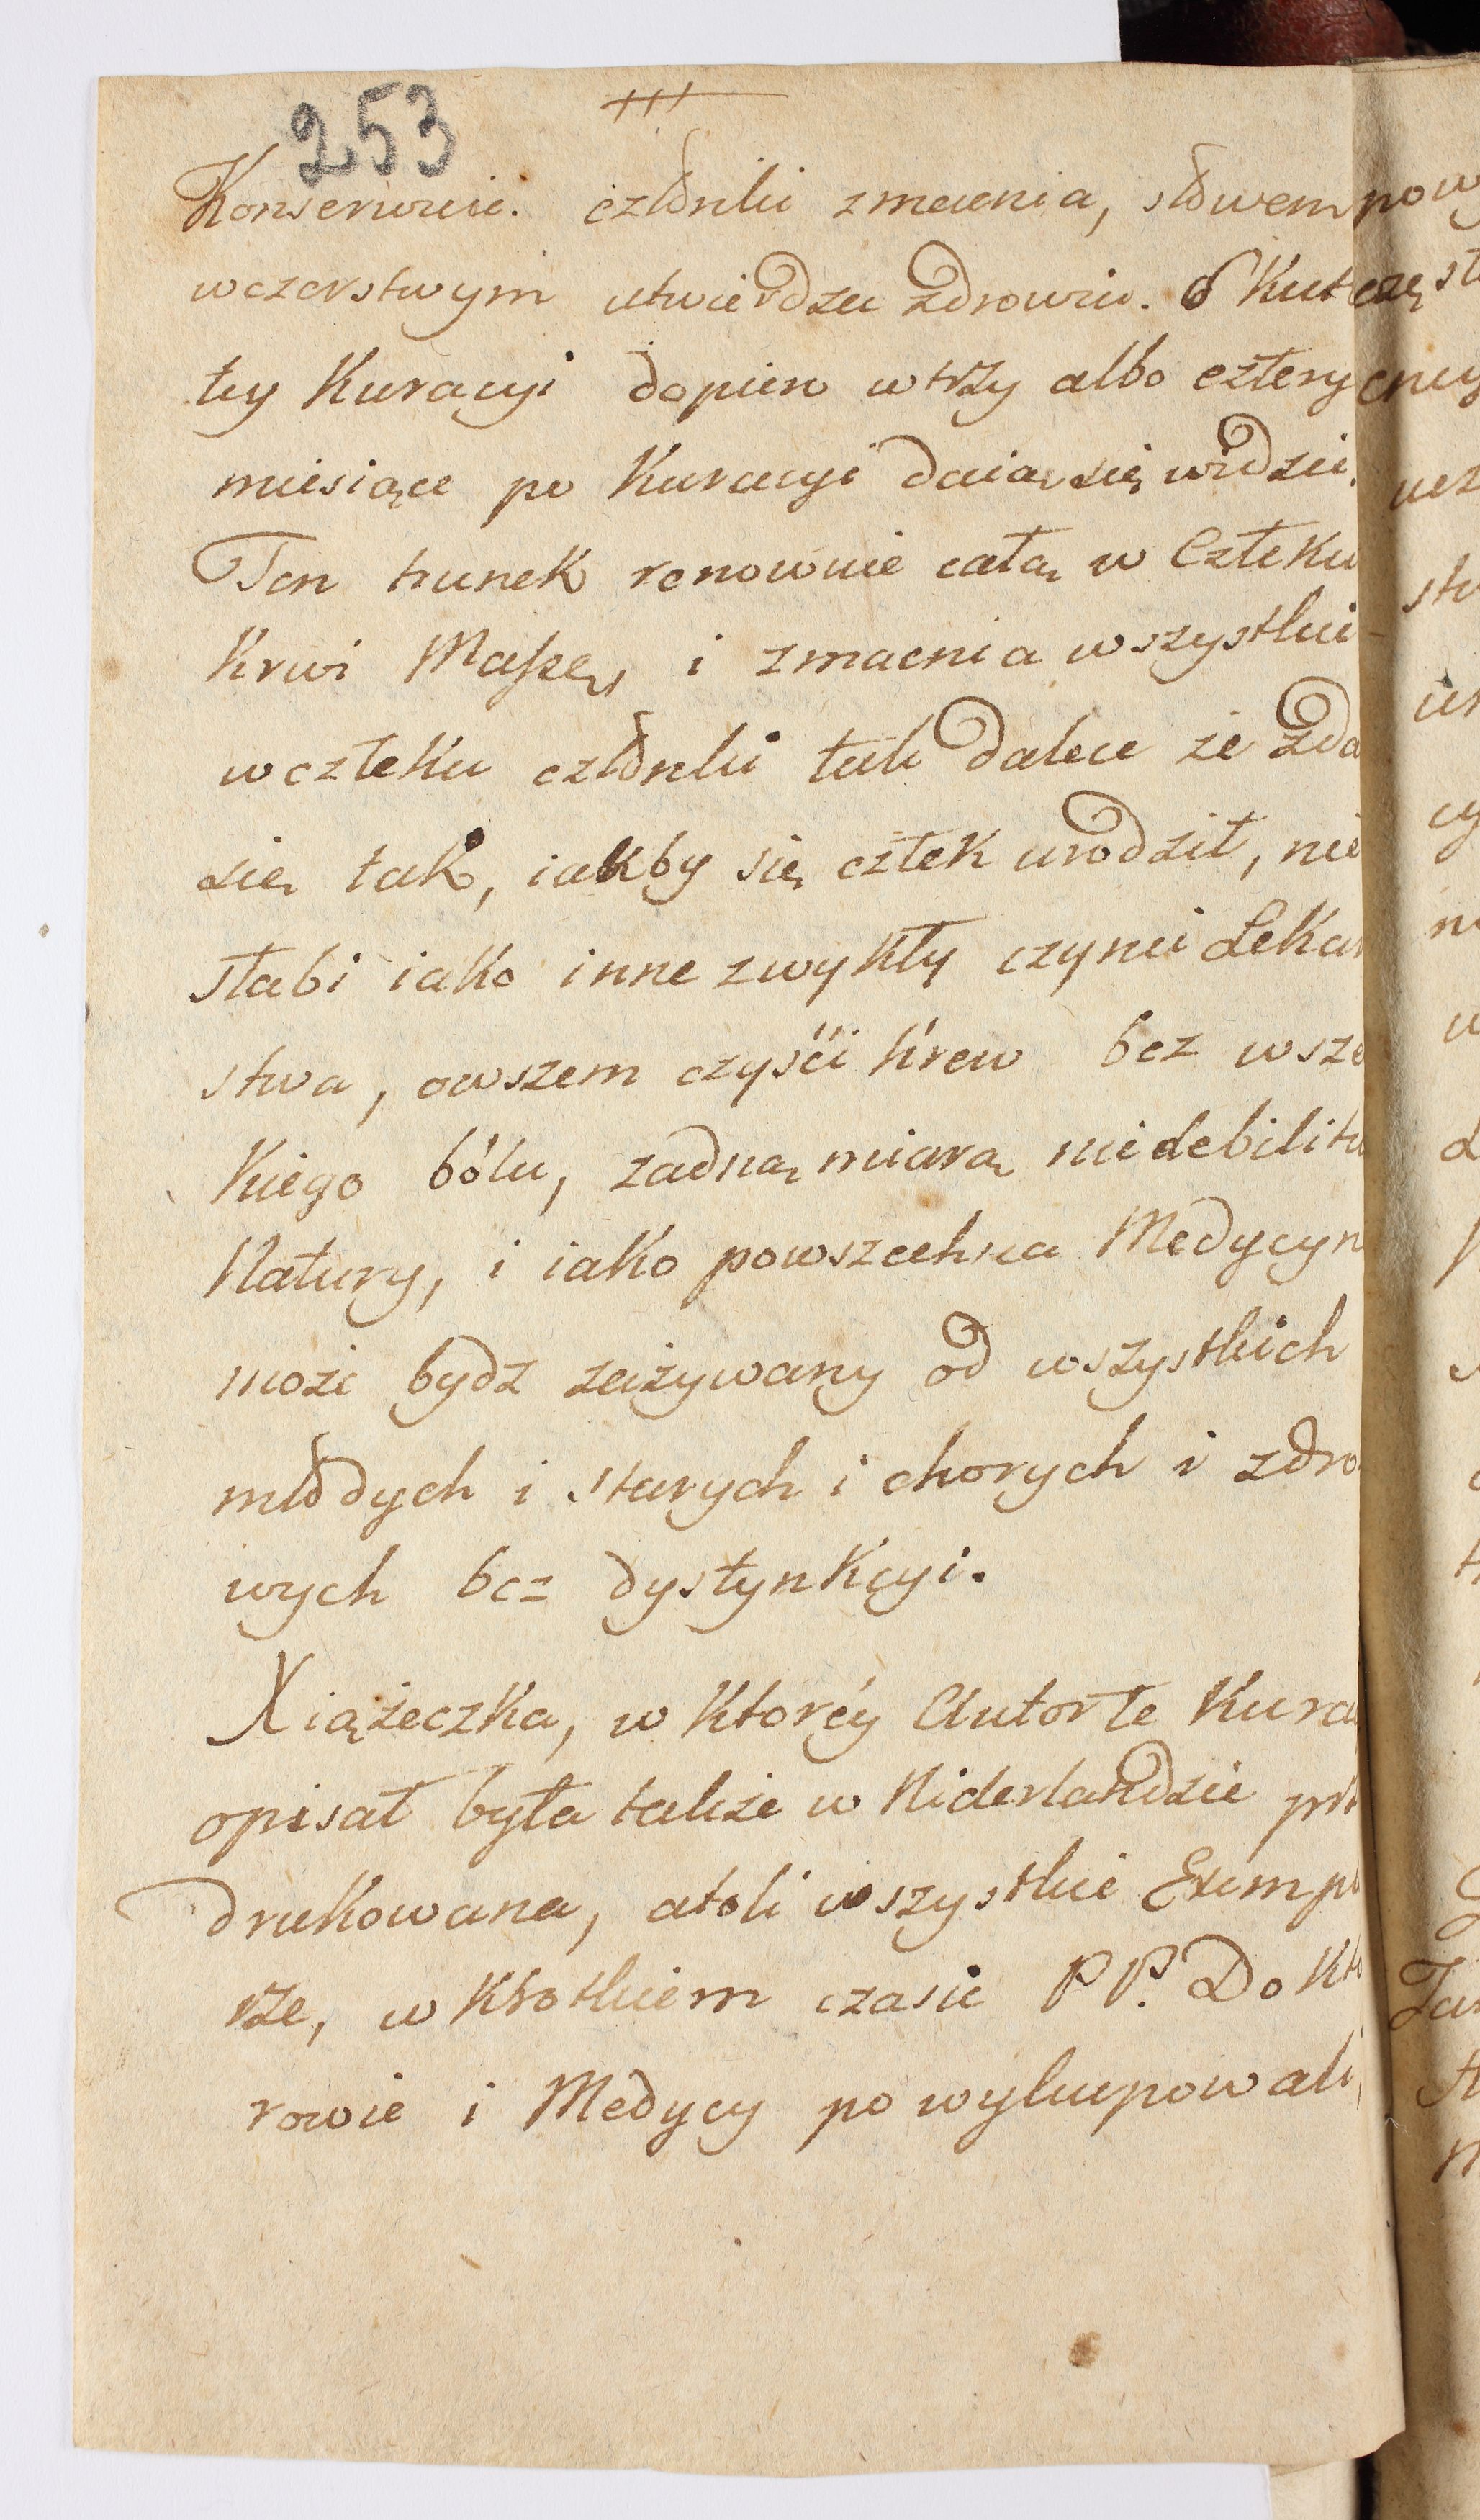 253
Konserwuie. człônki zmacnia, słôwem
w czerstwym utwierdza zdrowiu.
tey Kuracyi dopiero w trzy albo cztery
miesiące po Kuracyi daią się widzieć.
Ten trunek renowuie całą w Człeku
Krwi Massę, i zmacnia wszystkie
w człeku człônki tak dalece że zda
się tak, iakby się człek urodził, nie
słabi iako inne zwykły czynić Lekar
stwa, owszem czyśći krew bez wsze
kiego bólu, żadną miarą nie debilitu
Natury, i iako powszechna Medycyn
może bydz zażywany od wszystkich
młôdych i starych i chorych i zdro
wych bez dystynkcyi.
Xiążeczka, w Ktoréy Autor te Kura
opisał była także w Niderlandzie
drukowana, atoli wszystkie Exempl
rze, w Krotkiem czasie PP. Dokto
rowie i Medycy powykupowali,